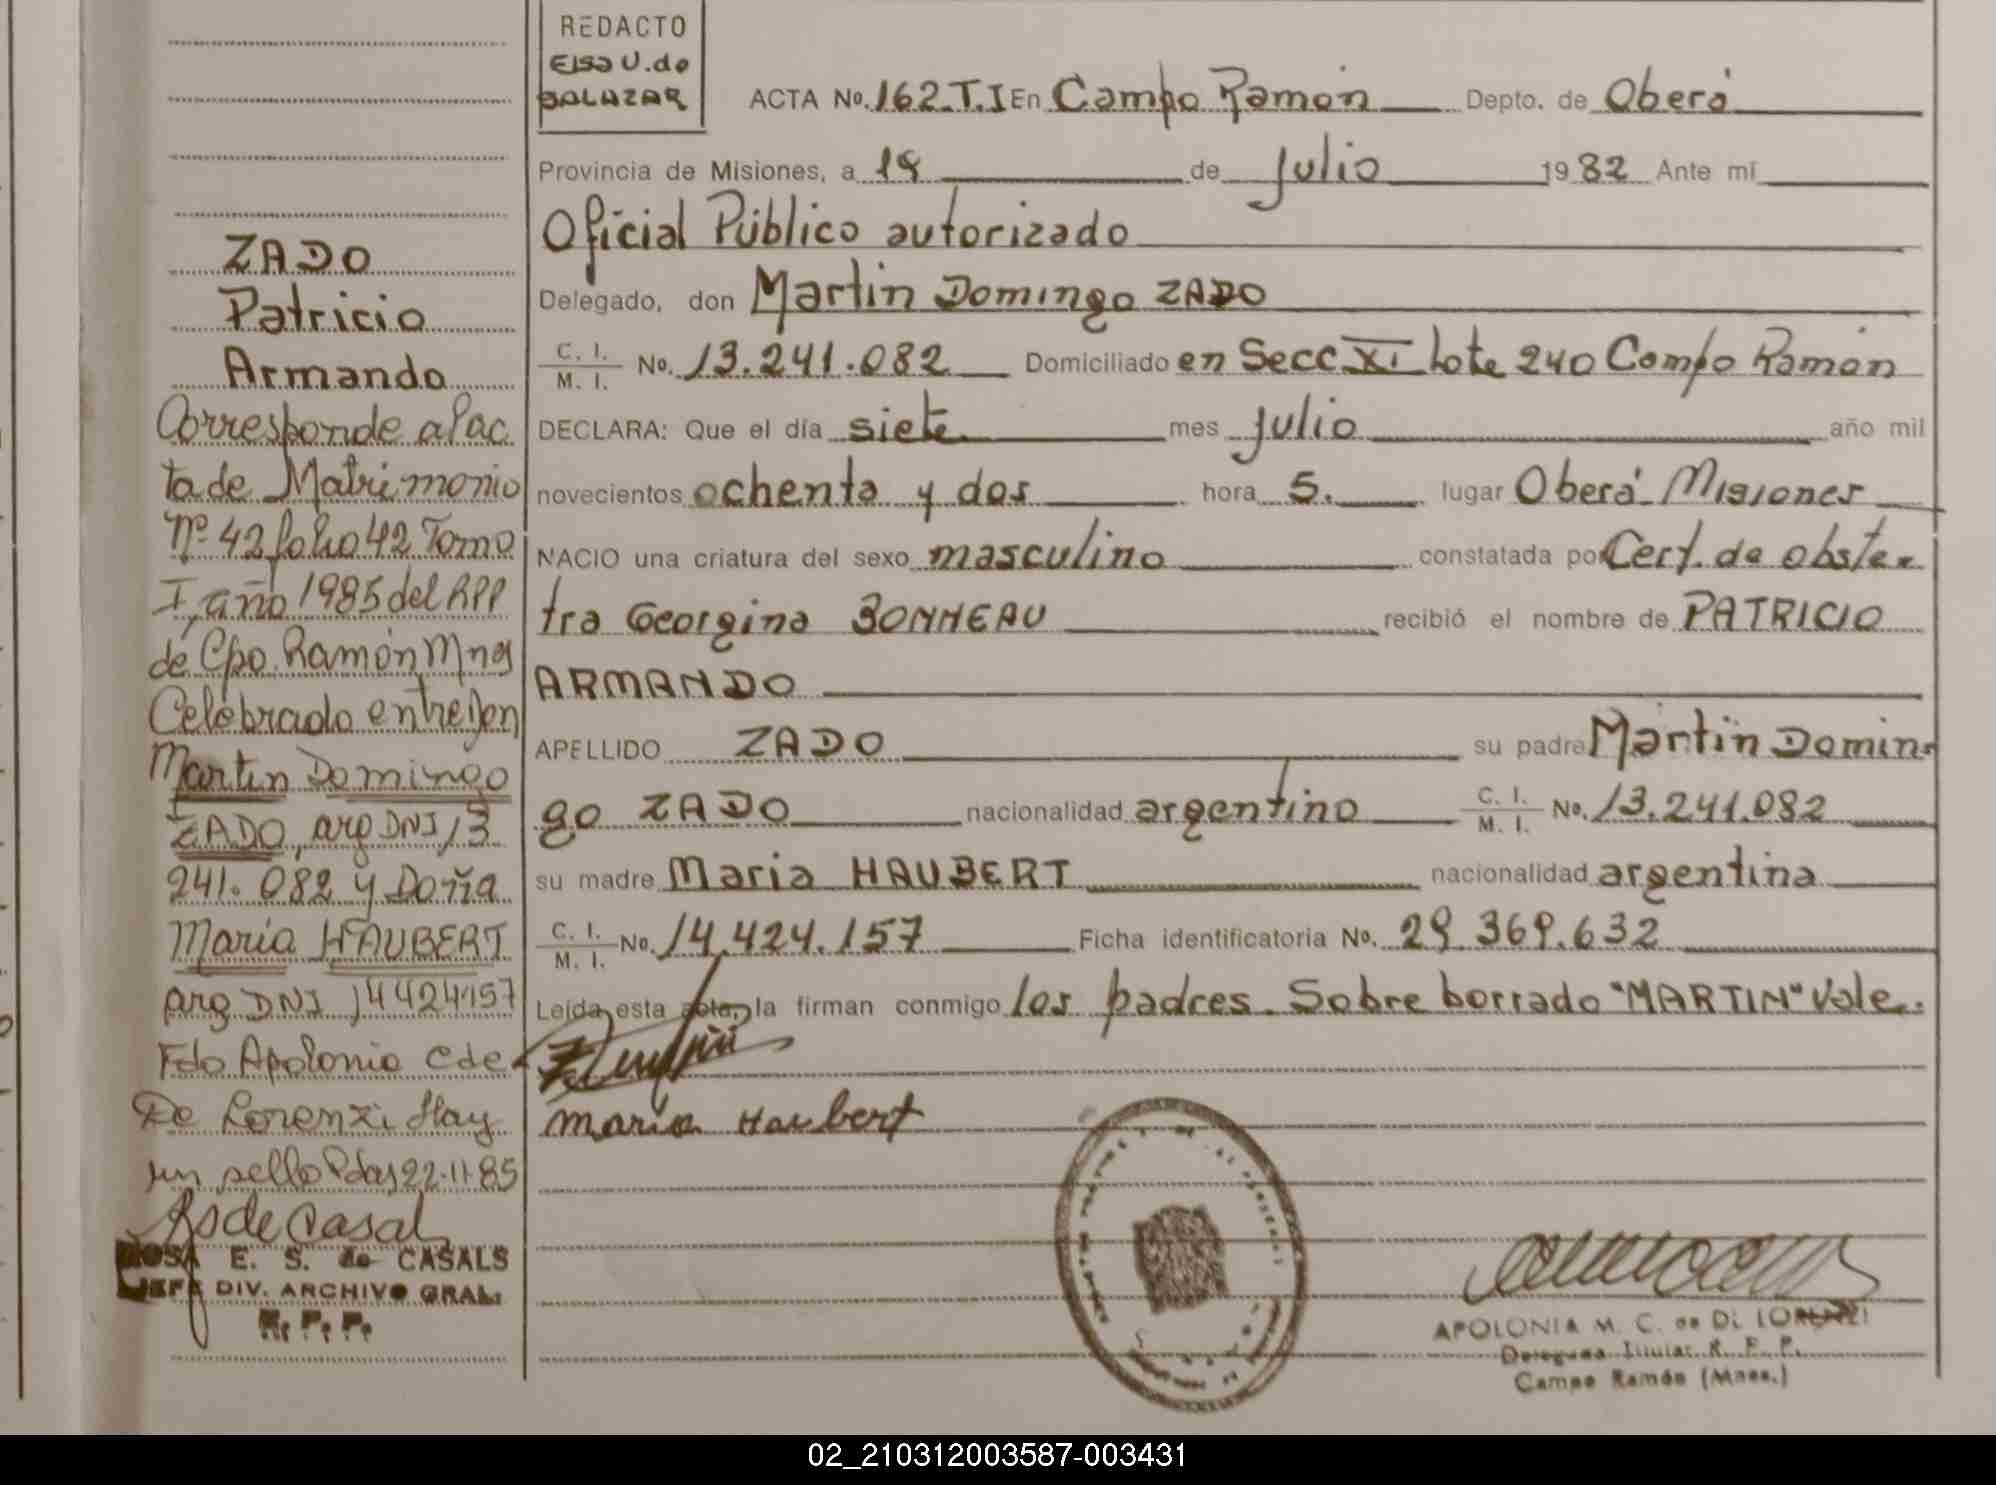 REDACTO
Elsa U. de
SALAZAR
ACTA No. 162.T.I En Campo Ramón Depto. de Oberá
Provincia de Misiones, a 19 de julio 1982 Ante mí
Oficial Público autorizado
Delegado, don Martin Domingo ZADO
C. I. / M. I. No. 13.241.082 Domiciliado en Secc XI Lote 240 Campo Ramón
DECLARA: Que el día siete mes julio año mil
novecientos ochenta y dos hora 5. lugar Oberá Misiones
NACIO una criatura del sexo masculino constatada por Cert. de obste-
tra Georgina BONNEAU recibió el nombre de PATRICIO
ARMANDO
APELLIDO ZADO su padre Martin Domin-
go ZADO nacionalidad argentino C. I. / M. I. No. 13.241.082
su madre Maria HAUBERT nacionalidad argentina
C. I. / M. I. No. 14.424.157 Ficha identificatoria No. 29.369.632
Leída esta acta, la firman conmigo los padres. Sobre borrado "MARTIN" Vale.
maria Haubert
APOLONIA M. C. de DI LORENZI
Delegada Titular R. P. P.
Campo Ramón (Mnes.)
ZADO
Patricio
Armando
Corresponde al ac
ta de Matrimonio
Nº 42 folio 42 Tomo
I, año 1985 del RPP
de Cpo. Ramón Mnes
Celebrado entre Don
Martin Domingo
ZADO, arg DNI 13
241.082 y Doña
Maria HAUBERT
arg DNI 14424157
Fdo Apolonia C de
De Lorenzi Hay
un sello Pdas 22-11-85
Rs de Casals
ROSA E. S. de CASALS
JEFE DIV. ARCHIVO GRAL.
R. P. P.
02_210312003587-003431